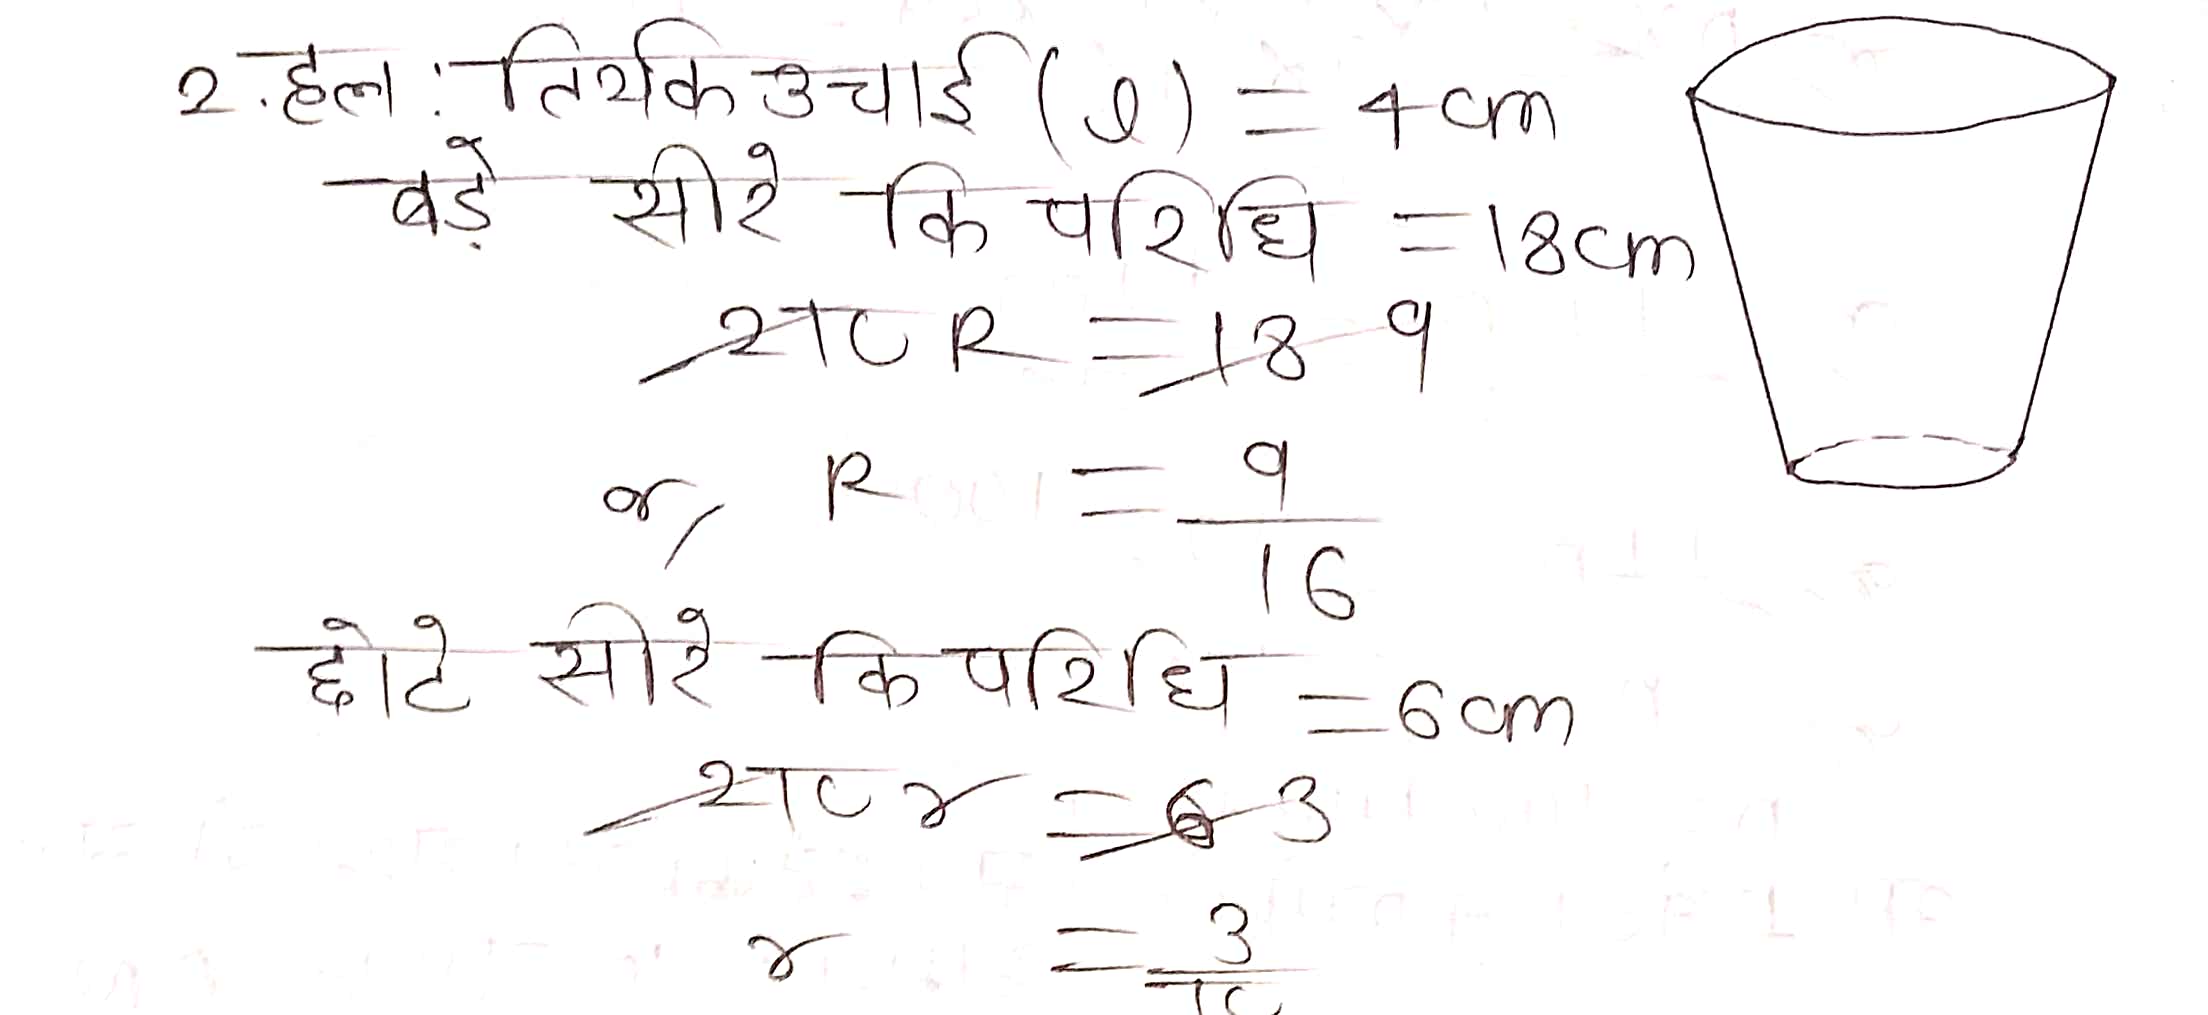 2. हल : तिर्यक उचाई (l) = 4 cm
बड़े सीरे कि परिधि = 18cm
2πR = 18 9
or, R = 9/16
छोटे सीरे कि परिधि = 6 cm
2πr = 6 3
r = 3/π